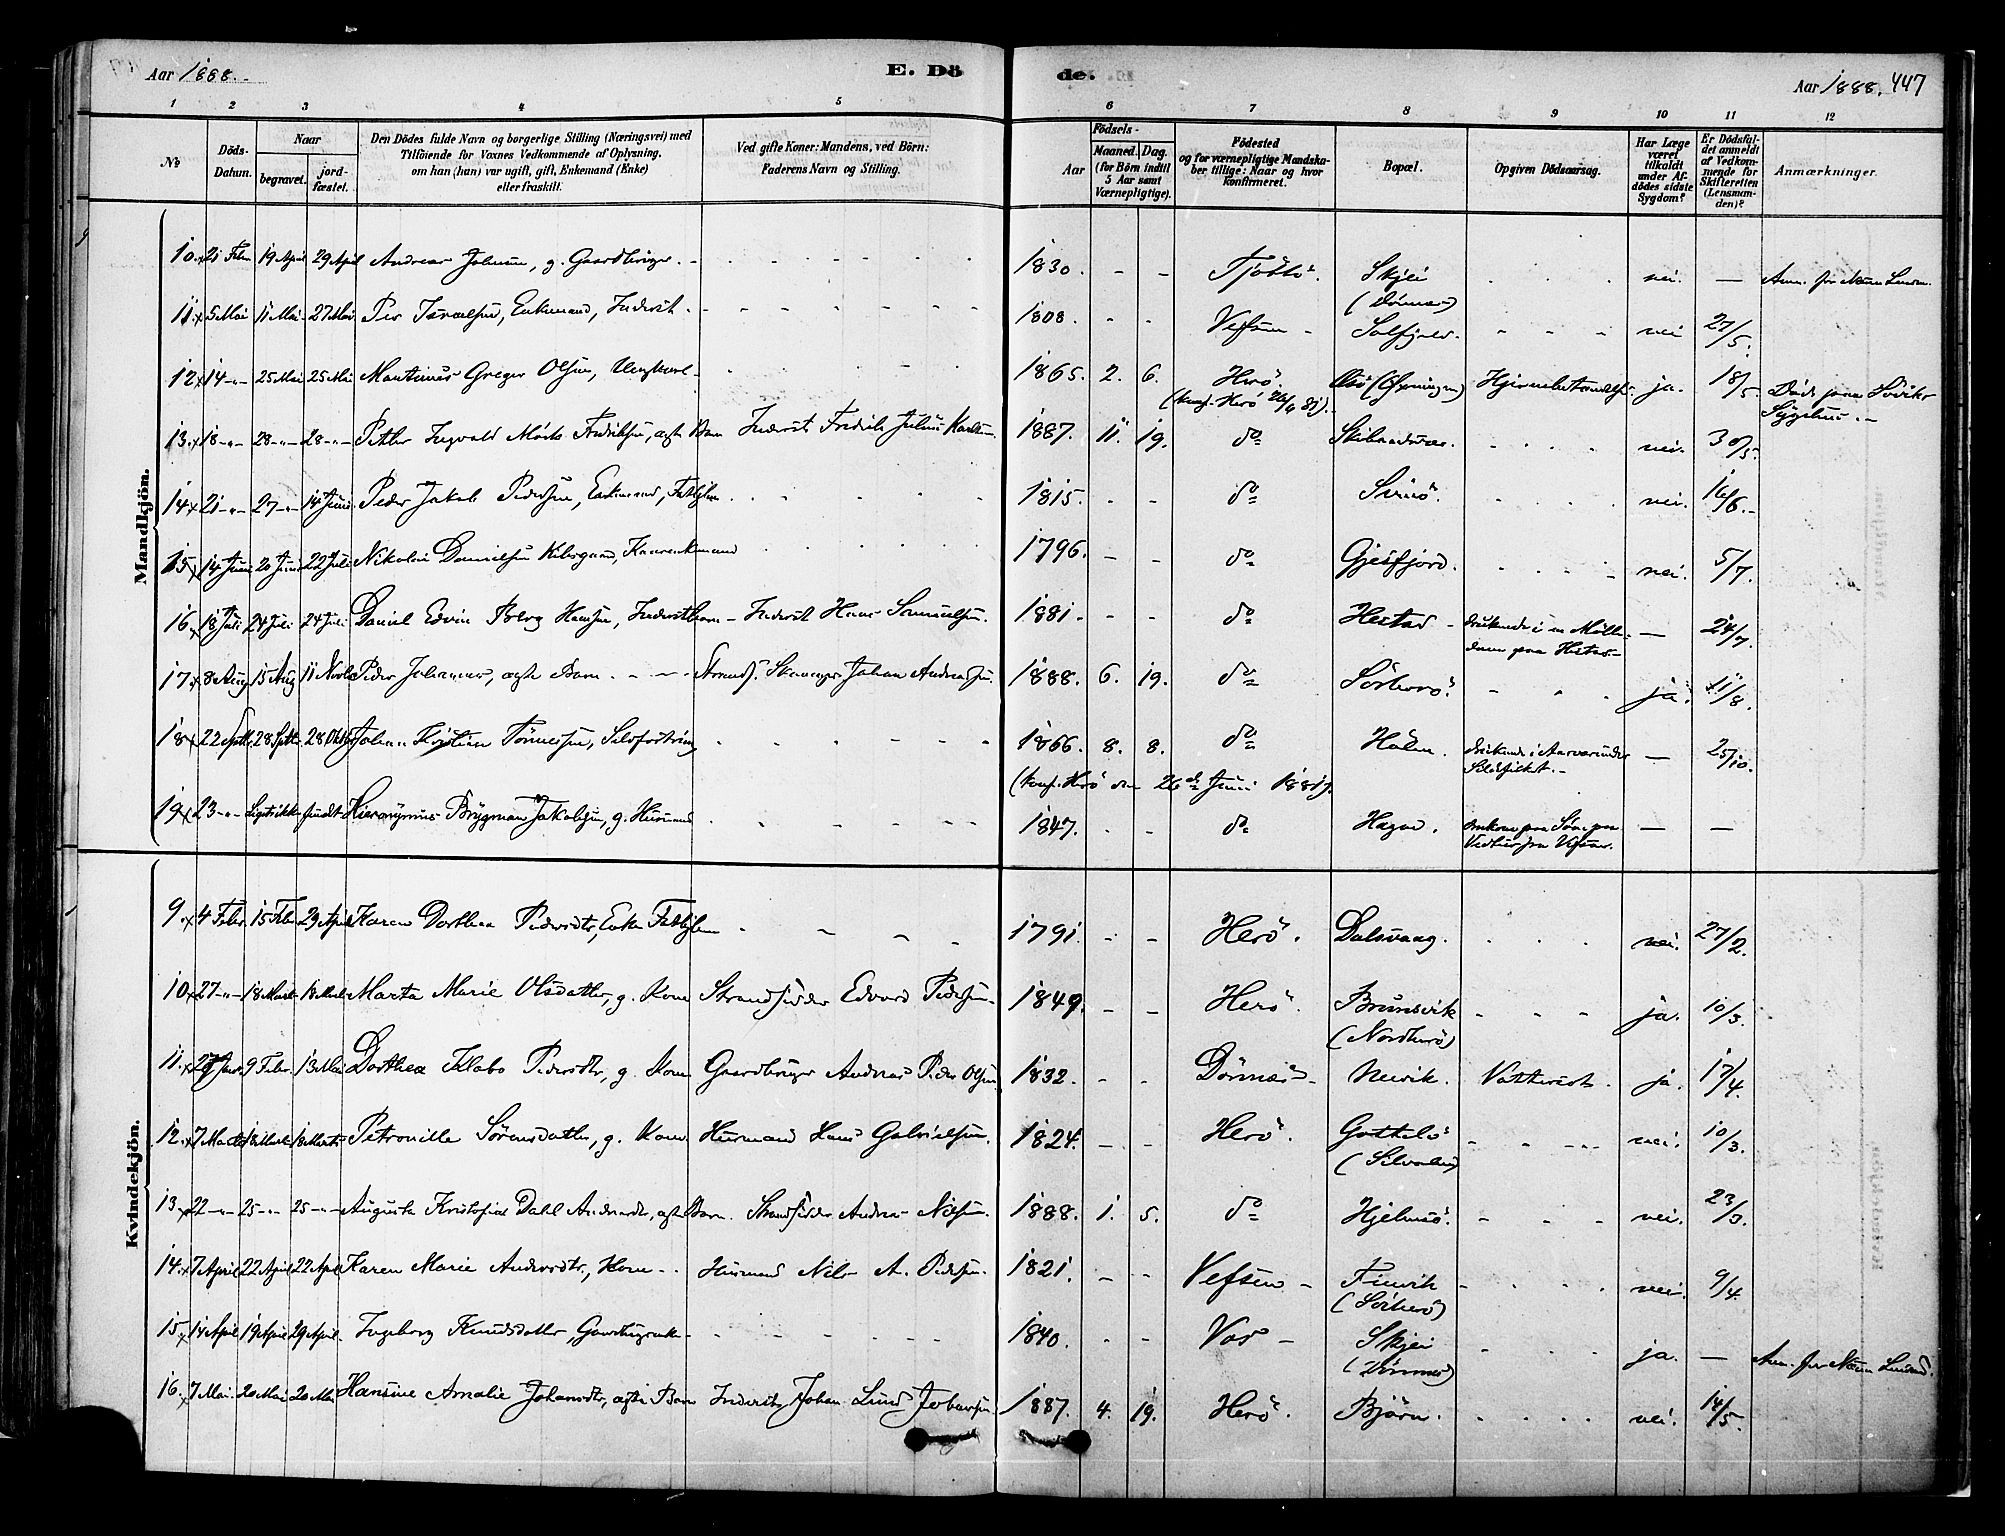 Aar 1888.
E. Dö
de.
Aar 1888. 447
1 2 3 4 5 6 7 8 9 10 11 12
No
Döds-Datum.
Naar
begravet.
jord-fæstet.
Den Dödes fulde Navn og borgerlige Stilling (Næringsvei) med
Tilföiende for Voxnes Vedkommende af Oplysning,
om han (hun) var ugift, gift, Enkemand (Enke)
eller fraskilt.
Ved gifte Koner: Mandens, ved Börn:
Faderens Navn og Stilling.
Födsels-
Aar
Maaned. Dag.
(for Börn indtil
5 Aar samt
Værnepligtige).
Födested
og for værnepligtige Mandska-
ber tillige: Naar og hvor
konfirmeret.
Bopæl.
Opgiven Dödsaarsag.
Har Læge
været
tilkaldt
under Af-
dödes sidste
Sygdom?
Er Dödsfal-
det anmeldt
af Vedkom-
mende for
Skifteretten
(Lensman-
den)?
Anmærkninger.
Mandkjön.
10 21 Febr 19 April 29 April Andreas Johnsen, g. Gaardbruger. 1830. Tjöttö. Skjei (Dönnes) nei. —
11 5 Mai 11 Mai 27 Mai Per Israelsen, Enkemand, Inderst. 1808. Vefsen Solfjeld. nei 27/5.
12 14 -"- 25 Mai 25 Mai Martinus Greger Olsen, Ungkarl 1865. 2. 6. Herö. (konf. Herö 26/6 81). ja. 18/5. Död paa Söviks Sygehus.
13. 18 -"- 28 -"- 28 -"- Petter Ingvald Mörk Fredriksen, ægte Barn Inderst Fredrik Julius Karlsen. 1887. 11. 19. do Skibaadsvær. nei. 30/5.
14 21 -"- 27 -"- 14 Juni Peder Jakob Pedersen, Enkemand, Fattiglem 1815. do nei. 16/6.
15 14 Juni 20 Juni 22 Juli Nikolai Danielsen 1796. do Gjesfjord. nei. 5/7.
16 18 Juli 24 Juli 24 Juli Daniel Edvin Berg Hansen, Inderstbarn Inderst Hans Samuelsen. 1881. do Hestad druknede i en Mölle- dam paa Hestad. — 24/7.
17. 8 Aug 15 Aug 11 Novb Peder Johannes, ægte Barn Johan Andreas 1888. 6. 19. do Sörherö. ja. 11/8.
18 22 Septb 28 Septb 28 Oktbr Johan Kristian Tönnesen, 1866. 8. 8. do Holm. druknede i Aarvær under Sildefisket. — 25/10.
(konf. Herö den 26de Juni 1881).
19 23 -"- Lig ei ikke fundet Hieronymus Brygman Jakobsen, g. Husmand 1847. do Hagen. Vefsen. — —
Kvindekjön.
9. 4 Febr. 15 Febr 29 April Karen Dorthea Pedersdtr, Enke Fattiglem 1791. Herö. Dalsvaag. nei. 27/2.
10 27 -"- 18 Marts 18 Marts Marta Marie Olsdatter, g. Kone Strandsidder Edvard Pedersen 1849. Herö. Brunsvik (Nordherö) ja. 10/3.
11. 27 Janr 9 Febr. 13 Mai Dorthea Klabo Pedersdtr, g. Kone Gaardbruger Andreas Peder Olsen 1832. Dönnes Nervik. ja. 17/4.
12. 7 Marts 18 Marts 18 Marts Petronille Sörensdatter, g. Kone. Husmand Hans Gabrielsen. 1824. Herö. (Silvalen) nei. 10/3.
13. 22 -"- 25 -"- 25 -"- Augusta Kristofia Dahl Andersdtr, ægte Barn. Strandsidder Andreas Nilsen. 1888. 1. 5. do Hjelmsö. nei. 23/3.
14. 7 April 22 April 22 April Karen Marie Andersdtr, Kone Husmand Nils A. Pedersen. 1821. Vefsen Finvik (Sörherö) nei. 9/4.
15 14 April 19 April 29 April Ingeborg Knudsdatter, 1840. Vos Skjei (Dönnes) ja. —
16. 7 Mai 20 Mai 20 Mai Hansine Amalie Johansdtr, ægte Barn Inderst Johan Lund Johansen 1887. 4. 19. Herö. Björn. nei. 14/5.